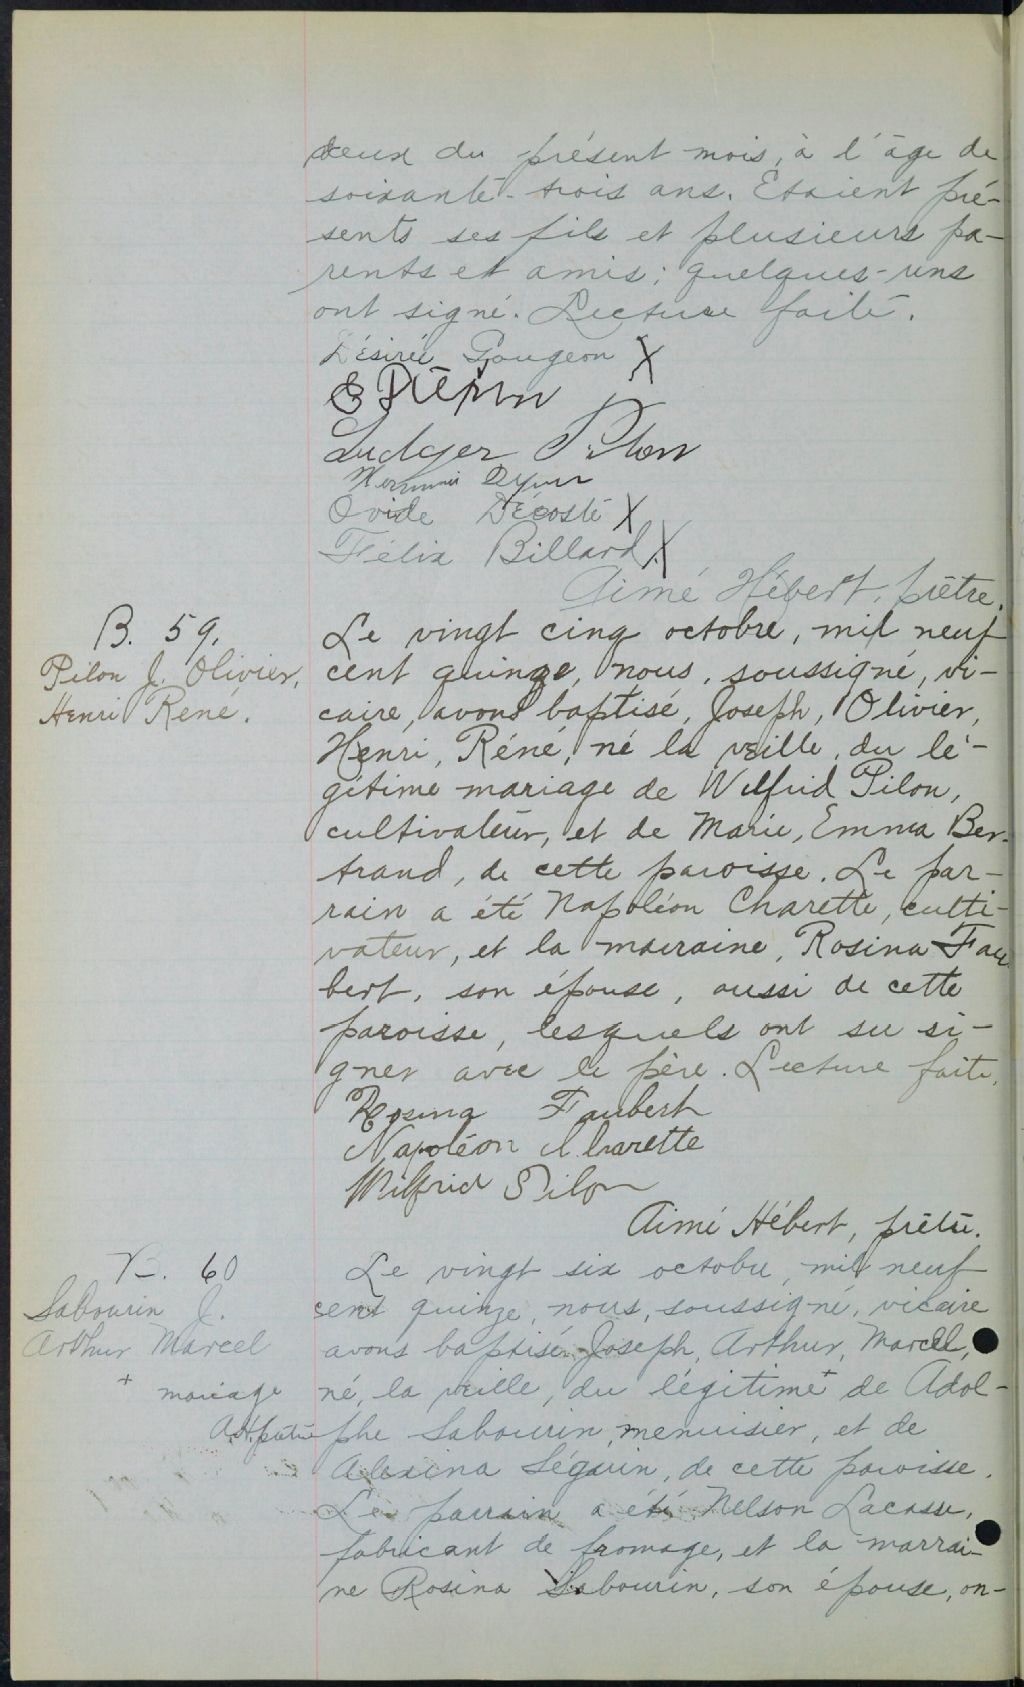 deux du présent mois, à l'âge de
soixante-trois ans. Etaient pré-
sents ses fils et plusieurs pa-
rents et amis; quelques-uns
ont signé. Lecture faite.
Désiré Gougeon X
Ludger Pilon
Ovide Décoste X
Félix Billard X
Aimé Hébert, prêtre.
B. 59.
Pilon J. Olivier,
Henri René.
Le vingt cinq octobre, mil neuf
cent quinze, nous, soussigné, vi-
caire, avons baptisé, Joseph, Olivier,
Henri, Réné, né la veille, du lé-
gitime mariage de Wilfrid Pilon,
cultivateur, et de Marie, Emma Ber-
trand, de cette paroisse. Le par-
rain a été Napoléon Charette, culti-
vateur, et la marraine, Rosina Fau-
bert, son épouse, aussi de cette
paroisse, lesquels ont su si-
gner avec le père. Lecture faite.
Rosina Faubert
Napoléon Charette
Wilfrid Pilon
Aimé Hébert, prêtre.
B. 60
Sabourin J.
Arthur Marcel
+ mariage
A.H. prêtre
Le vingt six octobre, mil neuf
cent quinze, nous, soussigné, vicaire
avons baptisé Joseph, Arthur, Marcel,
né, la veille, du légitime + de Adol-
phe Sabourin, menuisier, et de
Alexina Séguin, de cette paroisse.
Le parrain a été Nelson Lacasse,
fabricant de fromage, et la marrai-
ne Rosina Sabourin, son épouse, on-